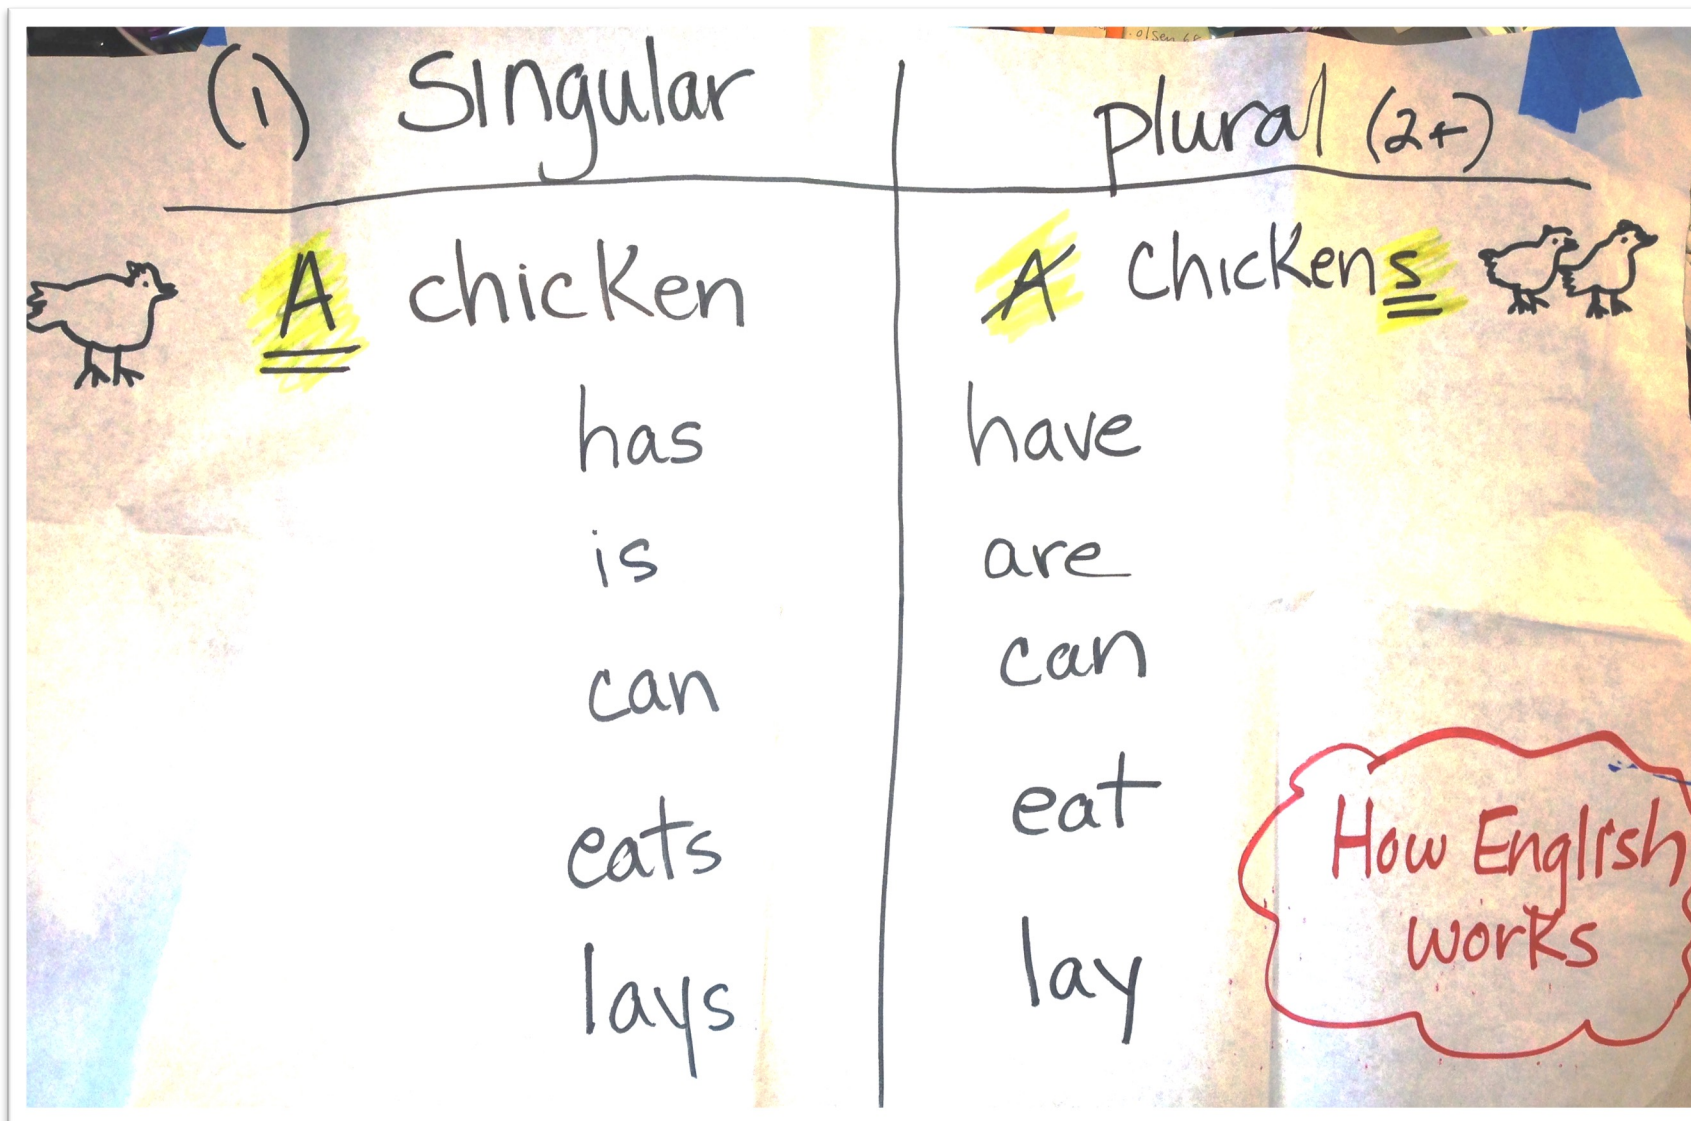 (1) Singular
plural (2+)
A chicken
A chickens
has
have
is
are
can
can
eats
eat
lays
lay
How English
works